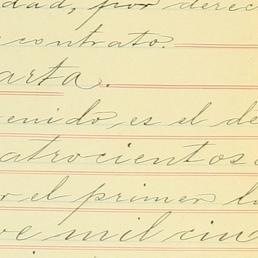 dad, por derec
contrato.
arta.
enido, es el de
atrocientos
el primer lu
ve mil cin